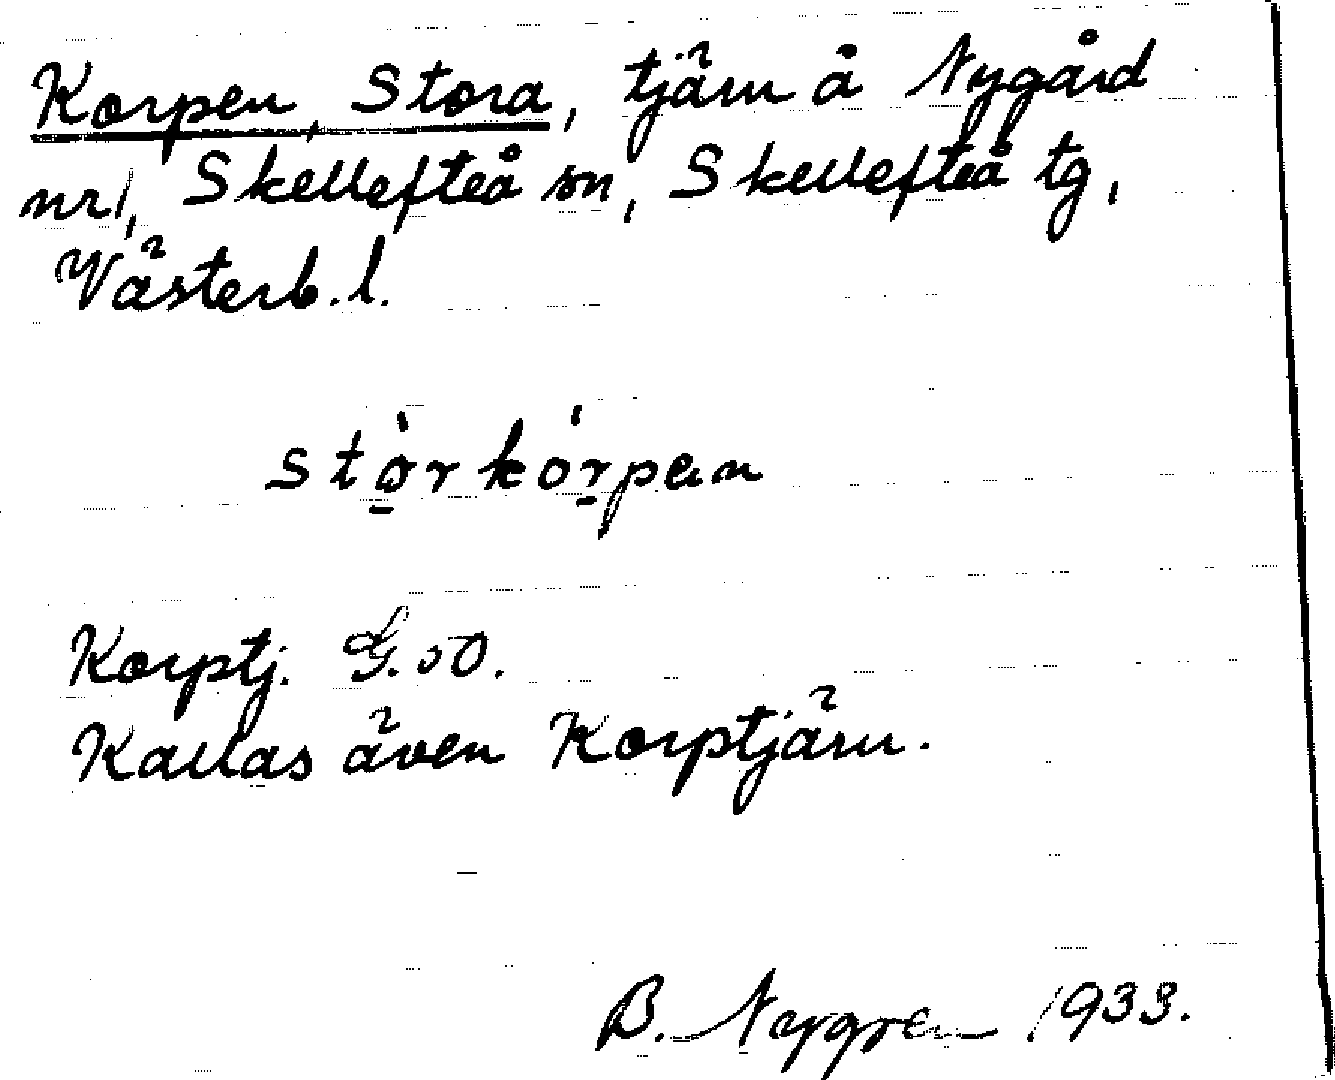 Korpen, Stora, tjärn å Nygård
nr 1, Skellefteå sn, Skellefteå tg,
Västerb. l.
stò̠rkór̠pen
Korptj. G. 50.
Kallas även Korptjärn.
B. Nygren 1933.